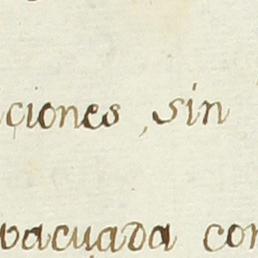 ciones, sin
vacuada con